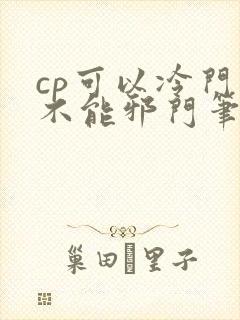 cp可以冷門
不能邪門筆
巢田 里子